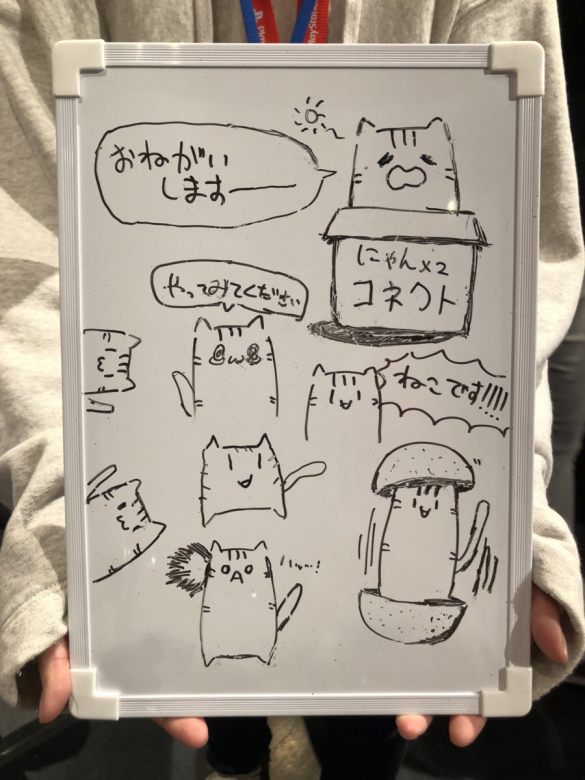 PlayStation
おねがい
します——
にゃん×2
コネクト
やってみてください
ねこです!!!!